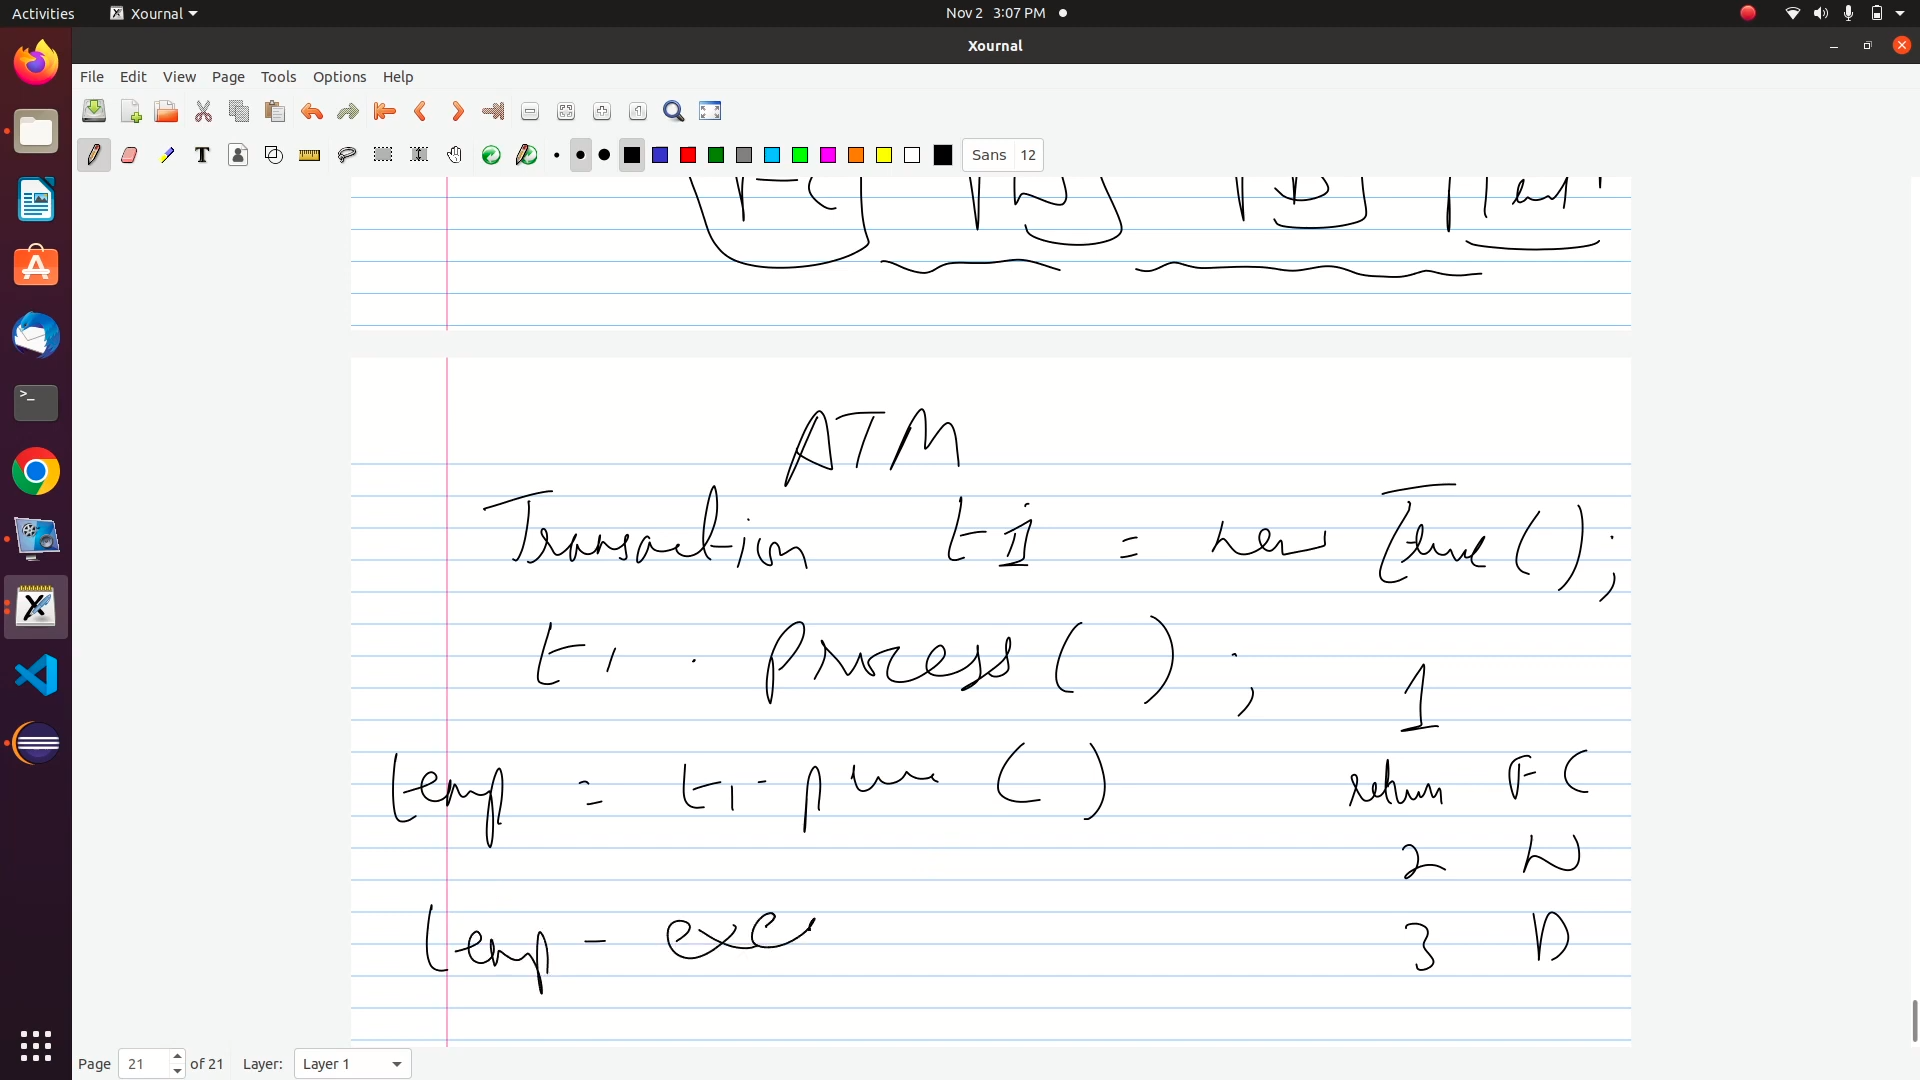 Activities Xournal Nov 2 3:07 PM
Xournal
File Edit View Page Tools Options Help
Sans 12
FC W D
ATM
Transaction t1 = new ();
t1 . process ( ) ;
1
temp = t1 . ( ) return FC
2 W
temp - exec
3 D
Page 21 of 21 Layer: Layer 1